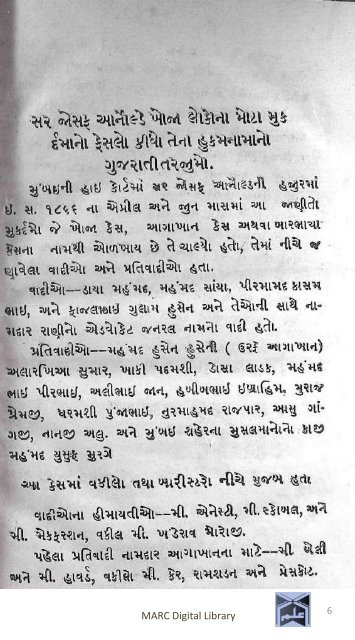 સર જોસફ આર્નોલ્ડે ખોજા લોકોના મોટા મુક
ર્દમાનો ફેસલો કીધો તેના હુકમનામાનો
ગુજરાતી તરજુમો.
મુંબઇની હાઇ કોર્ટમાં સર જોસફ આર્નોલ્ડની હજુરમાં
ઇ. સ. ૧૮૬૬ ના એપ્રીલ અને જુન માસમાં આ જાણીતો
મુકર્દમો જે ખોજા કેસ, આગાખાન કેસ અથવા બારભાયા
કેસના નામથી ઓળખાય છે તે ચાલ્યો હતો, તેમાં નીચે જ
ણાવેલા વાદીઓ અને પ્રતિવાદીઓ હતા.
વાદીઓ--ડાયા મહંમદ, મહંમદ સાંયા, પીરમામદ કાસમ
ભાઇ, અને ફાજલભાઇ ગુલામ હુસેન અને તેઓની સાથે ના-
મદાર રાણીનો એડવોકેટ જનરલ નામનો વાદી હતો.
પ્રતિવાદીઓ--મહંમદ હુસેન હુસેની ( ઉરફે આગાખાન)
અલારખિઆ સુમાર, ખાકી પદમશી, ડોસા લાડક, મહંમદ
ભાઇ પીરભાઇ, અલીભાઇ જાન, હબીબભાઇ ઇબ્રાહિમ, મુરાજ
પ્રેમજી, ધરમશી પુંજાભાઇ, નુરમાહમદ રાજપાર, આસુ ગાં-
ગજી, નાનજી અલુ. અને મુંબઇ શહેરના મુસલમાનોનો કાજી
મહંમદ યુસુફ મુરગે
આ કેસમાં વકીલો તથા બારીસ્ટરો નીચે મુજબ હતા
વાદીઓના હીમાયતીઓ--મી. એનેસ્ટી, મી. સ્કોબલ, અને
મી. મેકફરસન, વકીલ મી. ખંડેરાવ મોરોજી.
પહેલા પ્રતિવાદી નામદાર આગાખાનના માટે--મી બેલી
અને મી. હાવર્ડ, વકીલો મી. કેર, રામશડન અને પ્રેસકોટ.
MARC Digital Library
6